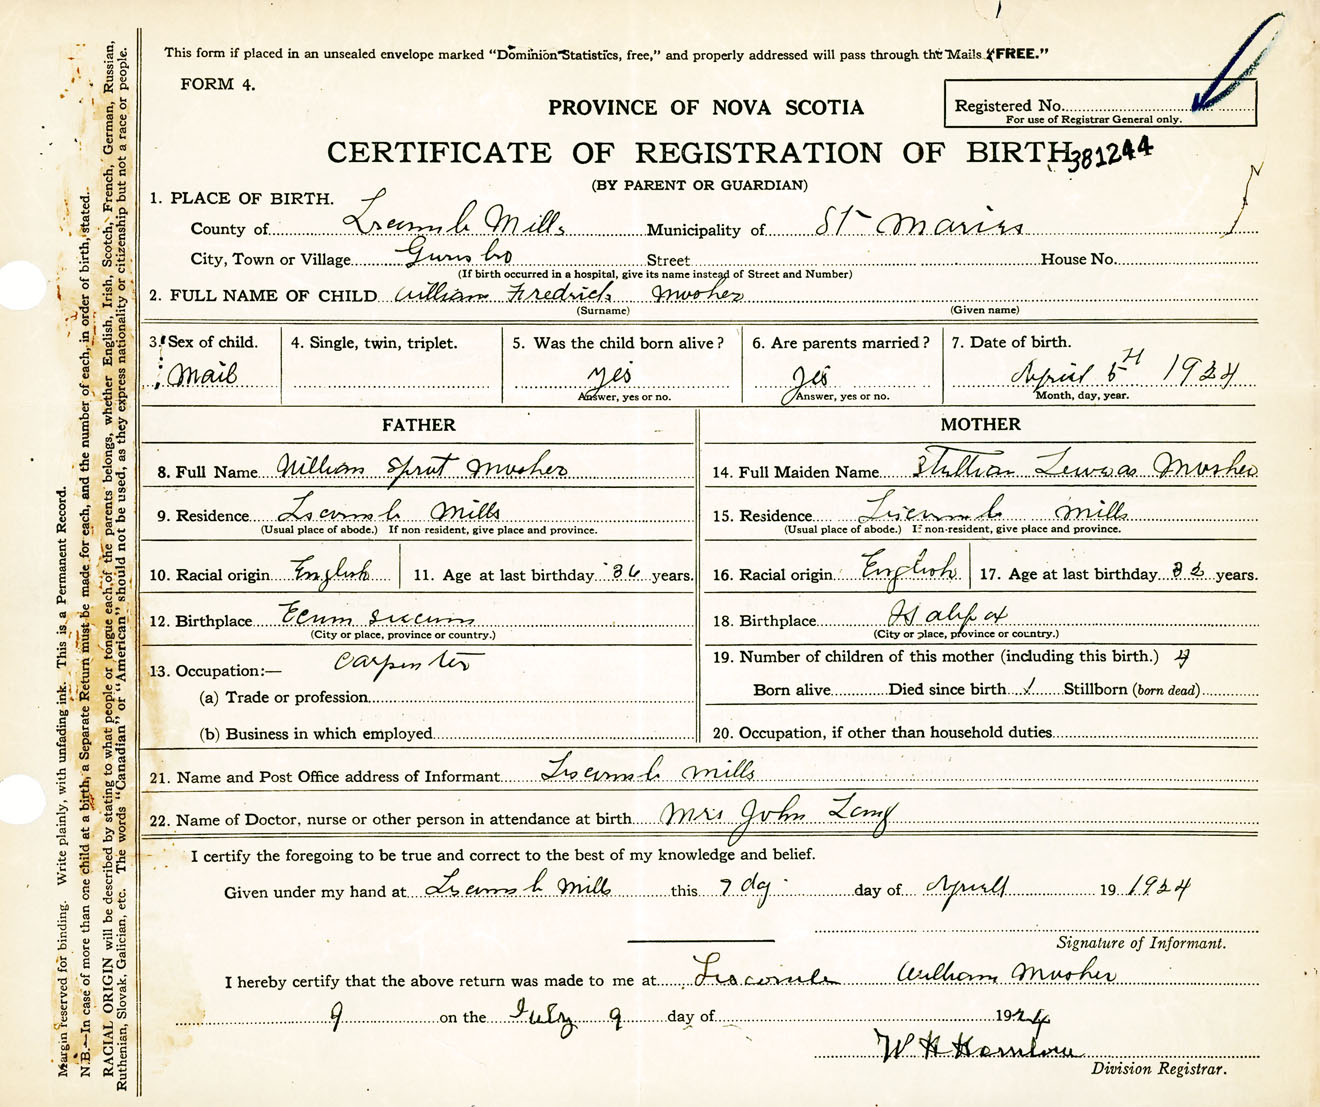 This form if placed in an unsealed envelope marked "Dominion Statistics, free," and properly addressed will pass through the Mails "FREE."
FORM 4.
PROVINCE OF NOVA SCOTIA
Registered No.
For use of Registrar General only.
CERTIFICATE OF REGISTRATION OF BIRTH
381244
(BY PARENT OR GUARDIAN)
1. PLACE OF BIRTH.
County of Liscomb Mills Municipality of St Maries
City, Town or Village Street House No.
(If birth occurred in a hospital, give its name instead of Street and Number)
2. FULL NAME OF CHILD William Fredrick Mosher
(Surname) (Given name)
3. Sex of child. 4. Single, twin, triplet. 5. Was the child born alive? 6. Are parents married? 7. Date of birth.
Mail yes yes April 5 1924
Answer, yes or no. Answer, yes or no. Month, day, year.
FATHER MOTHER
8. Full Name William Sprot Mosher 14. Full Maiden Name Mosher
9. Residence Liscomb Mills 15. Residence Liscomb Mills
(Usual place of abode.) If non resident, give place and province. (Usual place of abode.) If non-resident, give place and province.
10. Racial origin English 11. Age at last birthday 36 years. 16. Racial origin English 17. Age at last birthday 32 years.
12. Birthplace Ecum Secum 18. Birthplace Halifax
(City or place, province or country.) (City or place, province or country.)
13. Occupation:— Carpenter 19. Number of children of this mother (including this birth.) 4
(a) Trade or profession Born alive Died since birth 1 Stillborn (born dead)
(b) Business in which employed 20. Occupation, if other than household duties
21. Name and Post Office address of Informant Liscomb Mills
22. Name of Doctor, nurse or other person in attendance at birth Mrs John Lang
I certify the foregoing to be true and correct to the best of my knowledge and belief.
Given under my hand at Liscomb Mills this 7 dy day of Aprill 19 1924
Signature of Informant.
I hereby certify that the above return was made to me at Liscomb William Mosher
9 on the July 9 day of 1924
W H
Division Registrar.
Margin reserved for binding. Write plainly, with unfading ink. This is a Permanent Record.
N.B.—In case of more than one child at a birth, a Separate Return must be made for each, and the number of each, in order of birth, stated.
RACIAL ORIGIN will be described by stating to what people or tongue each of the parents belongs, whether English, Irish, Scotch, French, German, Russian,
Ruthenian, Slovak, Galician, etc. The words "Canadian" or "American" should not be used, as they express nationality or citizenship but not a race or people.